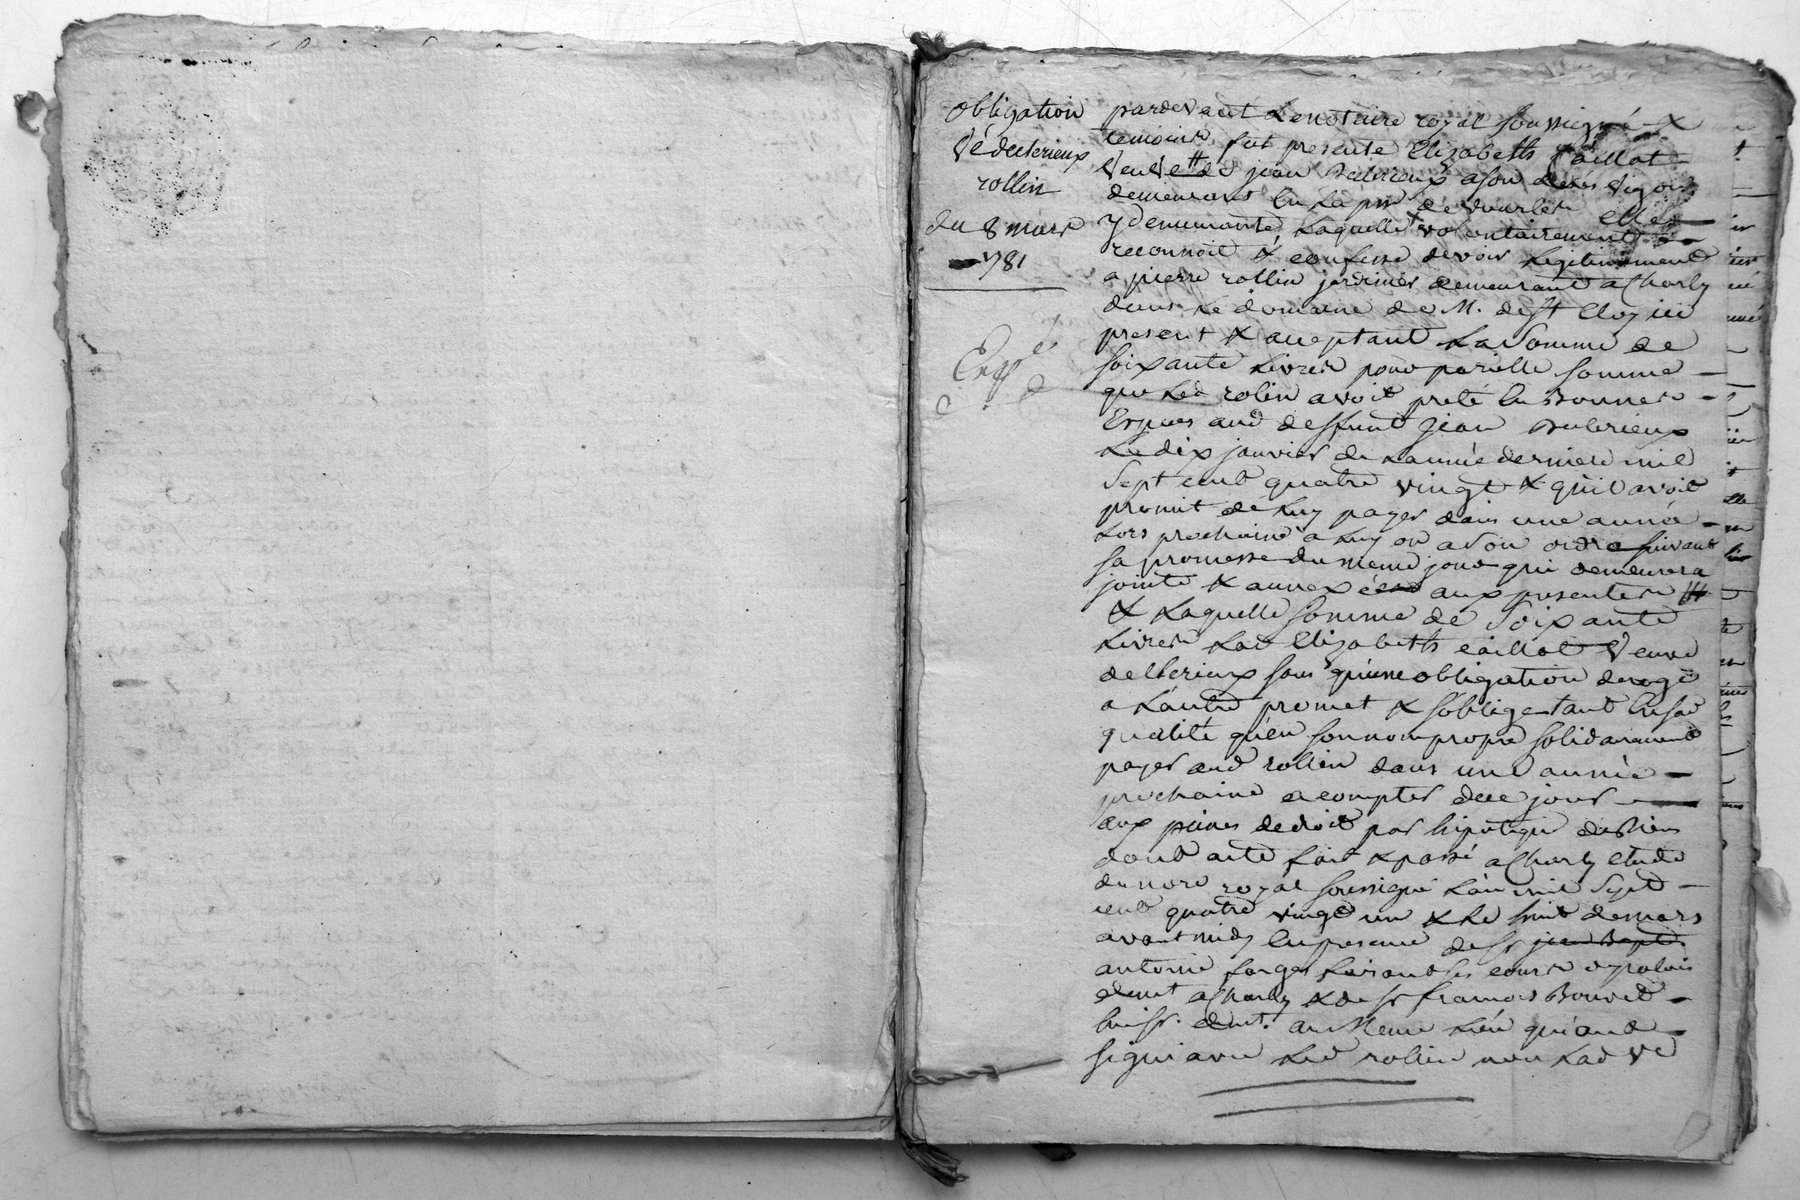 obligation
Vé delerieux
rollin
du 8 mars
1781
Exp.é
pardevant Le notaire royal soussigné &
temoins fut presente Elizabeth Caillot
veuve de jean Delerieux a son deces vigon
demeurant en La psse de vourles elle
y demeurante, Laquelle volontairement
reconnoit & confesse devoir Legitimement
a pierre rollin jardinier demeurant a Charly
dans Le domaine de M. de St Cloy ici
present & acceptant La somme de
soixante Livres pour pareille somme
que Led rolin avoit preté en Bonnes
Especes aud deffunt jean Delerieux
Le dix janvier de L'année derniere mil
Sept cent quatre vingt & qu'il avoit
promit de Luy payer dans une année
Lors prochaine a Luy ou a son ordre suivant
sa promesse du meme jour qui demeurera
jointe & annexée aux presentes
& Laquelle somme de Soixante
Livres Lad Elizabeth Caillot Veuve
delerieux sans qu'une obligation deroge
a L'autre promet & s'oblige tant en sad
qualité qu'en son nom propre solidairement
payer aud rollin dans une année
prochaine a compter de ce jour
aux peines de droit par hipoteque des Biens
dont acte fait & passé a Charly etude
du nore royal soussigné L'an mil Sept
cent quatre vingt un & Le huit de mars
avant midy en presence de sr jean Bapt.
antoine farges Laisant ses cours de palais
demt a Charly & de sr francois Bouvet
huissr. demt. au Meme Lieu qui ont
signé avec Led rollin non Lad ve